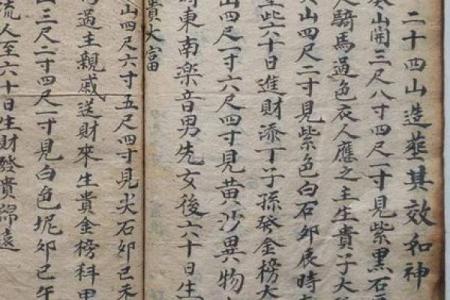 二十四山造塟其效和神
癸山開三尺八寸四尺一寸見紫黑石
人騎馬過色衣人應之主生貴子大
艮山四尺二寸見紫色白石卯辰時
塟些六十日進財添丁子孫發金榜大
山四尺一寸六尺四寸見黄沙異物
時東南樂音男先女後六十日生
貴大富
山四尺六寸五尺四寸見尖石卯已未
過主親戚送財來生貴金榜科甲
三尺二寸四尺一寸見白色坭卯已午
流人至六十日生財發貴歸遠